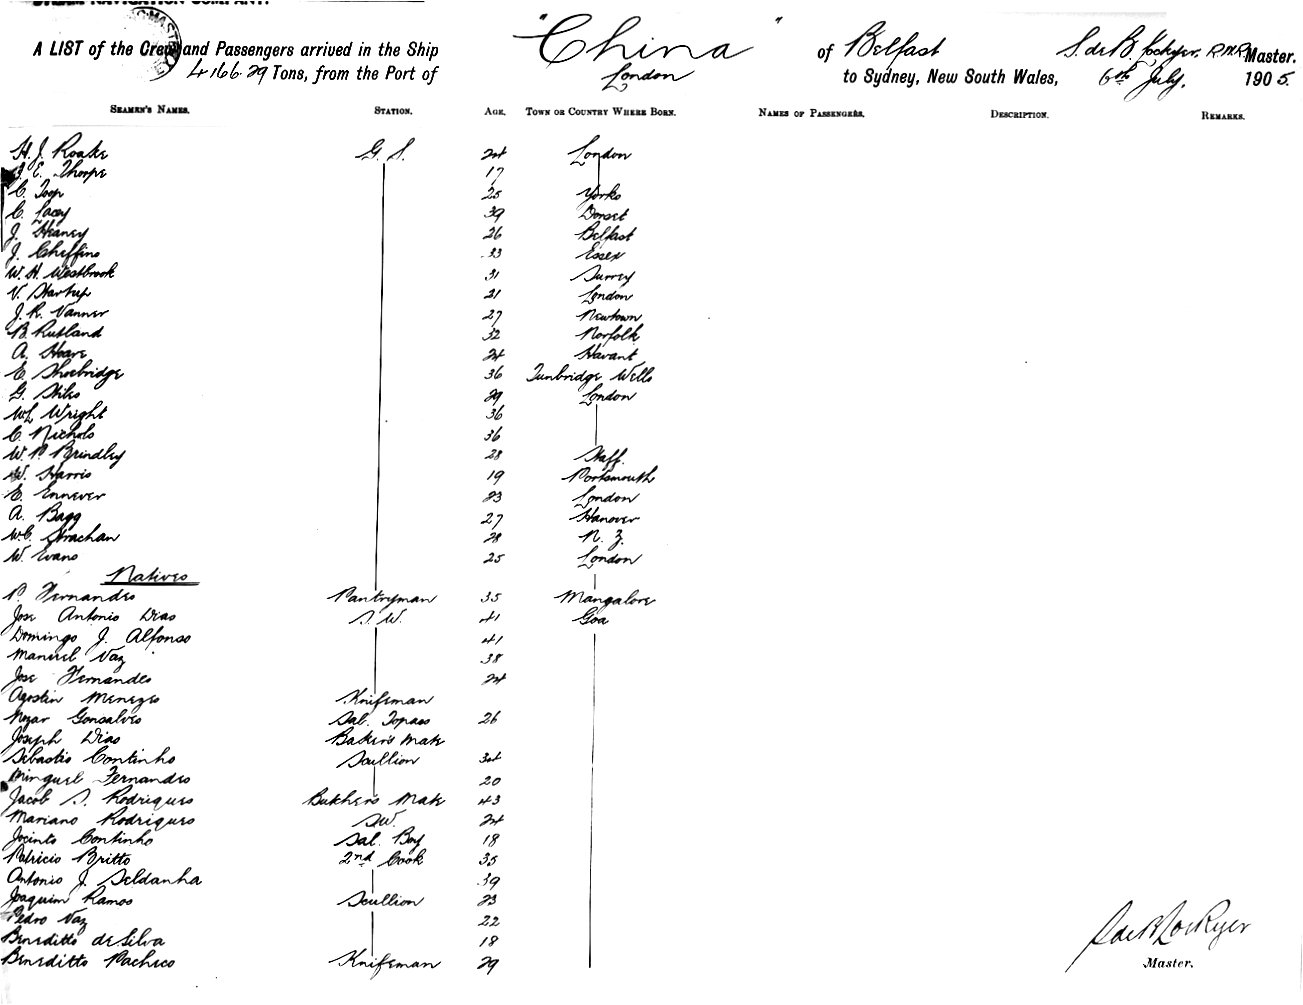 STEAM NAVIGATION COMPANY.
A LIST of the Crew and Passengers arrived in the Ship "China" of Belfast S. de B. Lockyer, R.N.R. Master.
4166.29 Tons, from the Port of London to Sydney, New South Wales, 6th July, 1905.
SEAMEN'S NAMES. STATION. AGE. TOWN OR COUNTRY WHERE BORN. NAMES OF PASSENGERS. DESCRIPTION. REMARKS.
H. J. Roake G. S. 24 London
E. Thorpe 17
C. Toop 25 Yorks
C. Lacey 39 Dorset
J. Heaney 26 Belfast
J. Cheffins 33 Essex
W. H. Westbrook 31 Surrey
V. Startup 21 London
J. R. Vanner 27 Newtown
B. Rutland 32 Norfolk
A. Hoare 24 Havant
E. Shoebridge 36 Tunbridge Wells
G. Stiles 29 London
Wm. Wright 36
C. Nichols 36
W. P. Brindley 28 Staff.
W. Harris 19 Portsmouth
E. Ennever 23 London
A. Bagg 27 Hanover
W. C. Strachan 28 N. Z.
W. Evans 25 London
Natives
P. Fernandes Pantryman 35 Mangalore
Jose Antonio Dias S. W. 41 Goa
Domingo J. Alfonso 41
Manuel Vaz 38
Jose Fernandes 24
Agostin Menezes Knifeman
Nazar Gonsalves Sal. Topass 26
Joseph Dias Baker's Mate
Sebastio Continho Scullion 34
Minguel Fernandes 20
Jacob S. Rodrigues Butcher's Mate 43
Mariano Rodrigues S.W. 24
Jacinto Continho Sal. Boy 18
Patricio Britto 2nd Cook 35
Antonio J. Seldanha 39
Joaquim Ramos Scullion 23
Pedro Vaz 22
Beneditto de Silva 18
Beneditto Pacheco Knifeman 29
S de B Lockyer
Master.